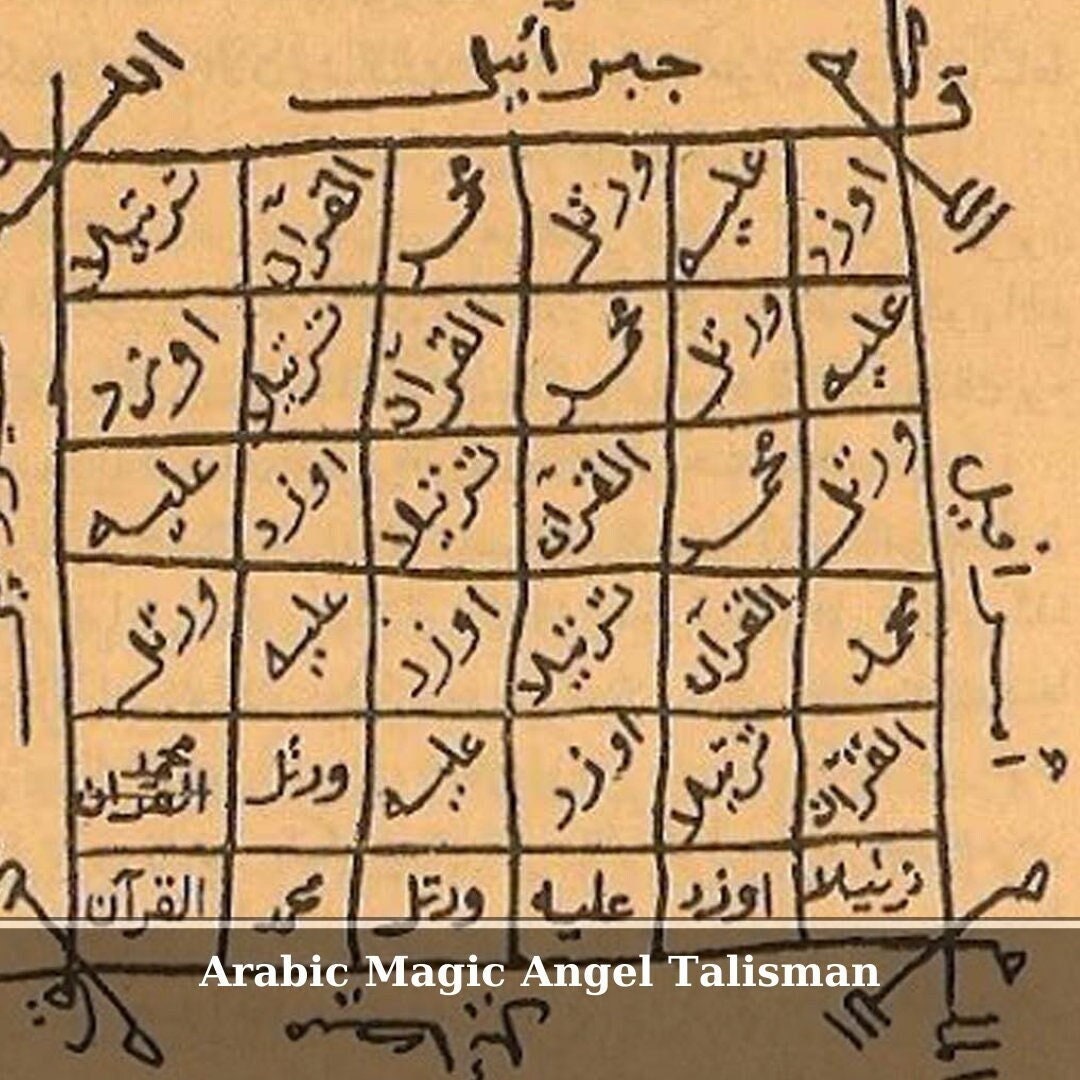 جبرآئيل
الله
الله
اوزد عليه ورتل محمد القرآن ترتيلا
عليه ورتل محمد القرآن ترتيلا اوزد
ورتل محمد القرآن ترتيلا اوزد عليه
محمد القرآن ترتيلا اوزد عليه ورتل
القرآن ترتيلا اوزد عليه ورتل محمد القرآن
ترتيلا اوزد عليه ورتل محمد القرآن
اسرافيل
Arabic Magic Angel Talisman